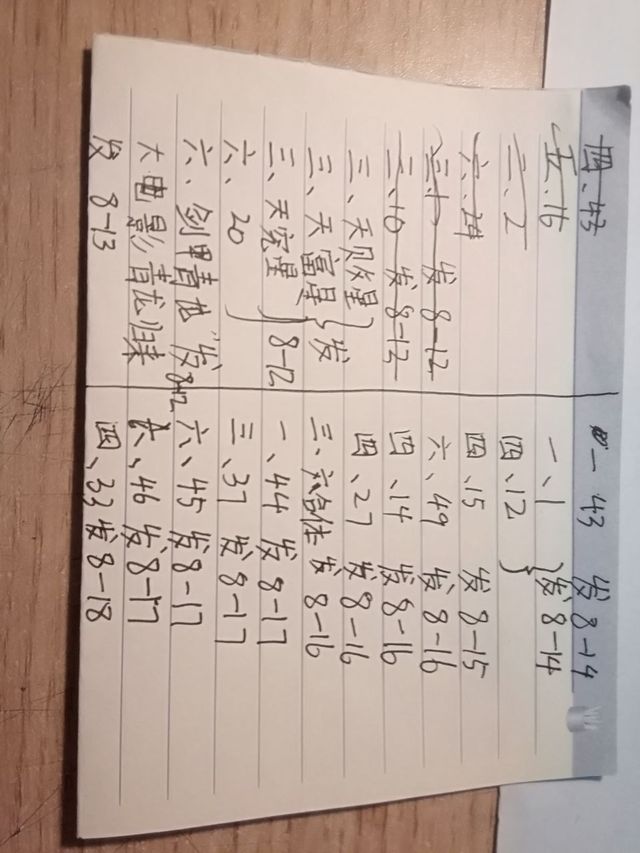 四、43
五、16
二、2
六、
发 8-12
三、10 发 8-12
三、天星
三、天富星 } 发
三、天宠星 8-12
六、20
六、剑甲青龙 发8-12
大电影青龙归来
发 8-13
一 43 发 8-14
一、1 } 发 8-14
四、12
四、15 发 8-15
六、49 发 8-16
四、14 发 8-16
四、27 发 8-16
三、六合体 发 8-16
一、44 发 8-17
三、37 发 8-17
六、45 发 8-17
六、46 发 8-17
四、33 发 8-18